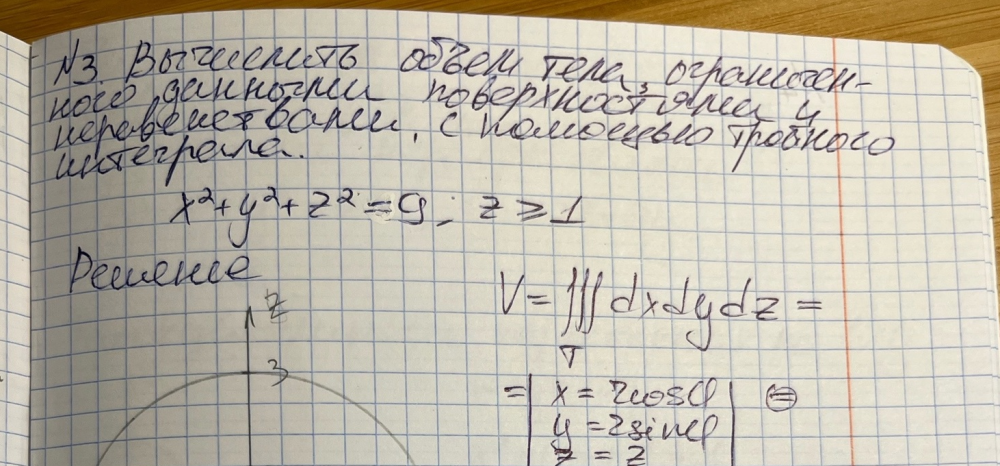 N3. Вычислить объем тела, ограничен-
ного данными поверхностями и
неравенствами, с помощью тройного
интеграла.
x²+y²+z²=9; z ≥ 1
Решение
z
V = ∭ dxdydz =
T
3
= | x = rcosφ | ⊜
y = rsinφ
z = z